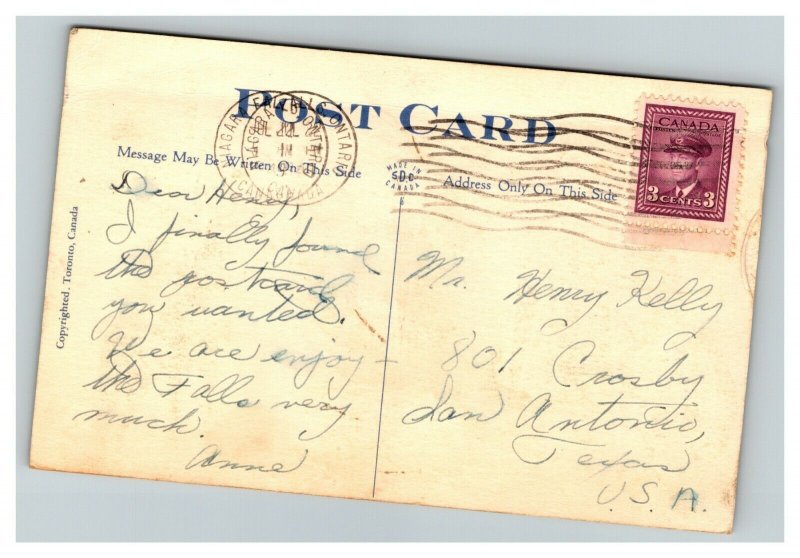 POST CARD
NIAGARA FALLS ONTARIO
CANADA
CANADA
3 CENTS 3
Message May Be Written On This Side
MADE IN
SDC
CANADA
Address Only On This Side
Copyrighted, Toronto, Canada
Dear Henry,
I finally found
the postcard
you wanted.
We are enjoy-
the Falls very
much.
Anne
Mr. Henry Kelly
801 Crosby
San Antonio,
Texas
U.S.A.